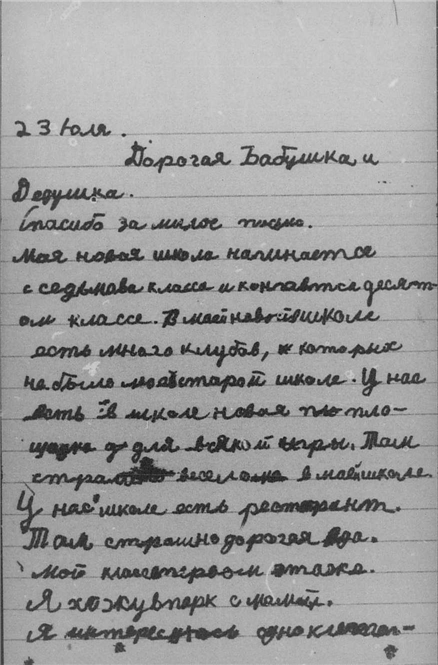 23 Юля.
Дорогая Бабушка и
Дедушка.
Спасибо за милое письмо.
Мая новая школа начинается
с седьмава класса и кончается десят-
ом классе. В маей новой школе
есть много клубов, которых
не было моей старой школе. У нас
есть в школе новая пло-
щадка для всякой игры. Там
весело в маей школе.
У нас школе есть ресторант.
Там страшно дорогая еда.
Мой класс первом этаже.
Я хожу в парк с мамай.
Я интересуюсь